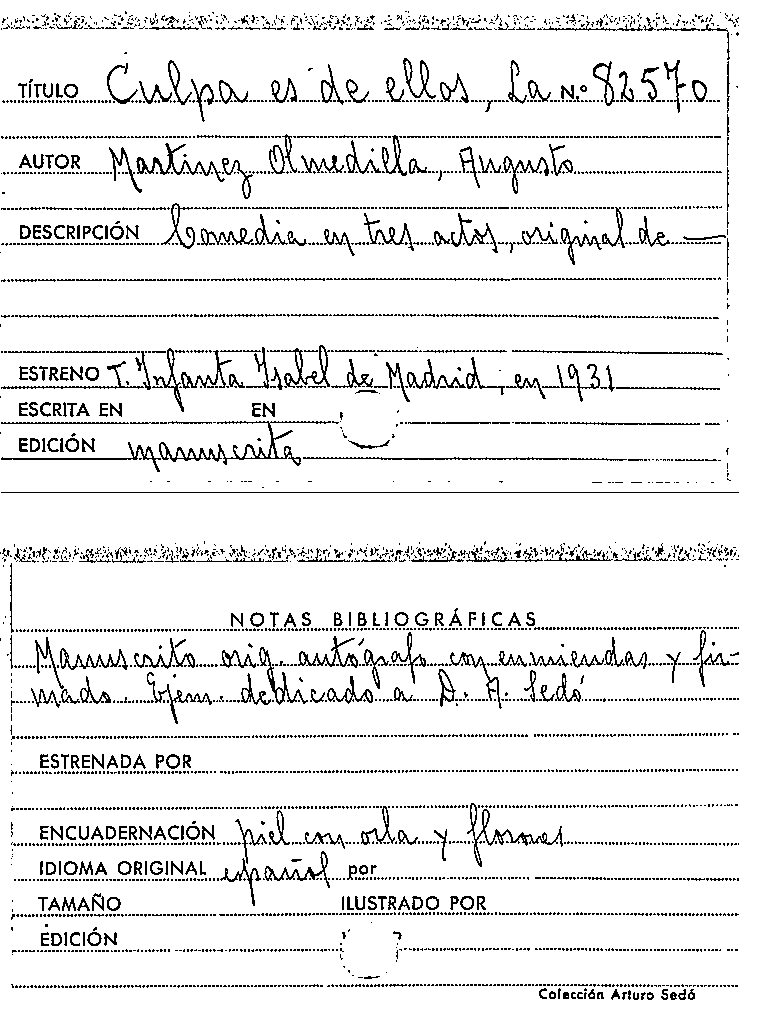 TÍTULO Culpa es de ellos, La N.º 82570
AUTOR Martinez Olmedilla, Augusto
DESCRIPCIÓN Comedia en tres actos, original de —
ESTRENO T. Infanta Isabel de Madrid, en 1931
ESCRITA EN EN
EDICIÓN manuscrita
NOTAS BIBLIOGRÁFICAS
Manuscrito orig. autógrafo con enmiendas y fir-
mado. Ejem. dedicado a D. A. Sedó
ESTRENADA POR
ENCUADERNACIÓN piel con orla y florones
IDIOMA ORIGINAL español por
TAMAÑO ILUSTRADO POR
EDICIÓN
Colección Arturo Sedó